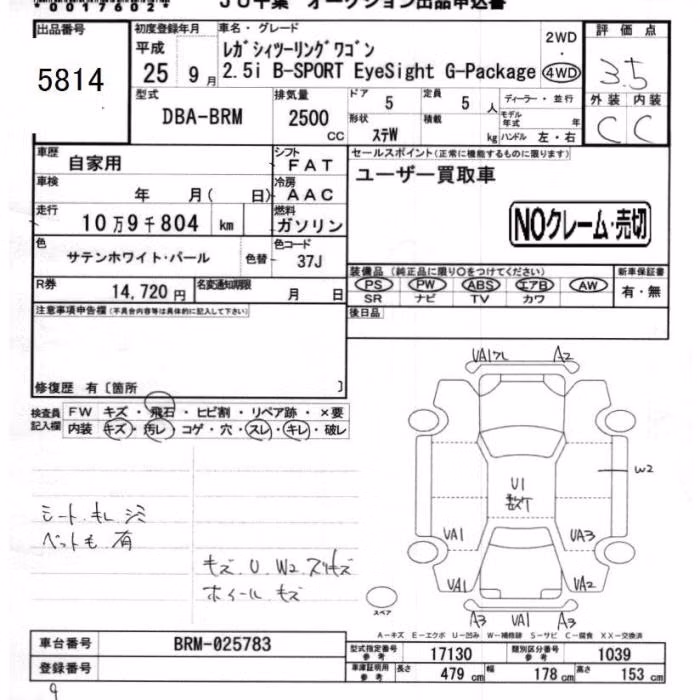 *00017602*
JU千葉 オークション出品申込書
出品番号 5814
初度登録年月 平成 25 9月
車名・グレード レガシィツーリングワゴン
2.5i B-SPORT EyeSight G-Package
2WD・4WD
評価点 3.5
外装 内装
C C
型式 DBA-BRM
排気量 2500 CC
ドア 5 定員 5 人
形状 ステW 積載 kg
ディーラー・並行
モデル年式 年
ハンドル 左・右
車歴 自家用
シフト FAT
車検 年 月( 日)
冷房 AAC
走行 10万9千804 km
燃料 ガソリン
色 サテンホワイト・パール 色替
色コード 37J
R券 14,720円
名変通知期限 月 日
セールスポイント(正常に機能するものに限ります)
ユーザー買取車
NOクレーム・売切
装備品(純正品に限り○をつけてください)
PS PW ABS エアB AW
SR ナビ TV カワ
新車保証書 有・無
後日品
注意事項申告欄(不具合内容等は具体的に記入して下さい)
修復歴 有〔箇所 〕
検査員記入欄
FW キズ・飛石・ヒビ割・リペア跡・×要
内装 キズ・汚レ・コゲ・穴・スレ・キレ・破レ
シート キレ シミ
ペット毛 有
キズ U W2 スリキズ
ホイール キズ
A2
W2
U1
VA1 VA3
VA1 VA2
A3 VA1 A3
スペア
A―キズ E―エクボ U―凹み W―補修跡 S―サビ C―腐食 XX―交換済
車台番号 BRM-025783
登録番号
型式指定番号 参考 17130 類別区分番号 参考 1039
車庫証明用 参考 長さ 479 cm 幅 178 cm 高さ 153 cm
9